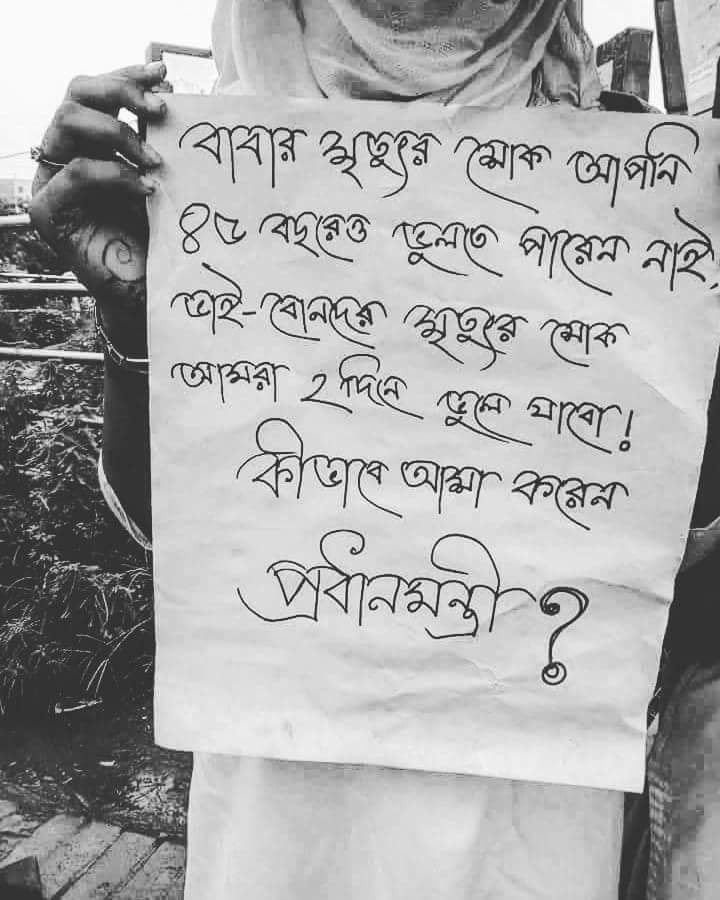 বাবার মৃত্যুর শোক আপনি
৪৫ বছরেও ভুলতে পারেন নাই,
ভাই-বোনদের মৃত্যুর শোক
আমরা ২ দিনে ভুলে যাবো!
কীভাবে আশা করেন
প্রধানমন্ত্রী?